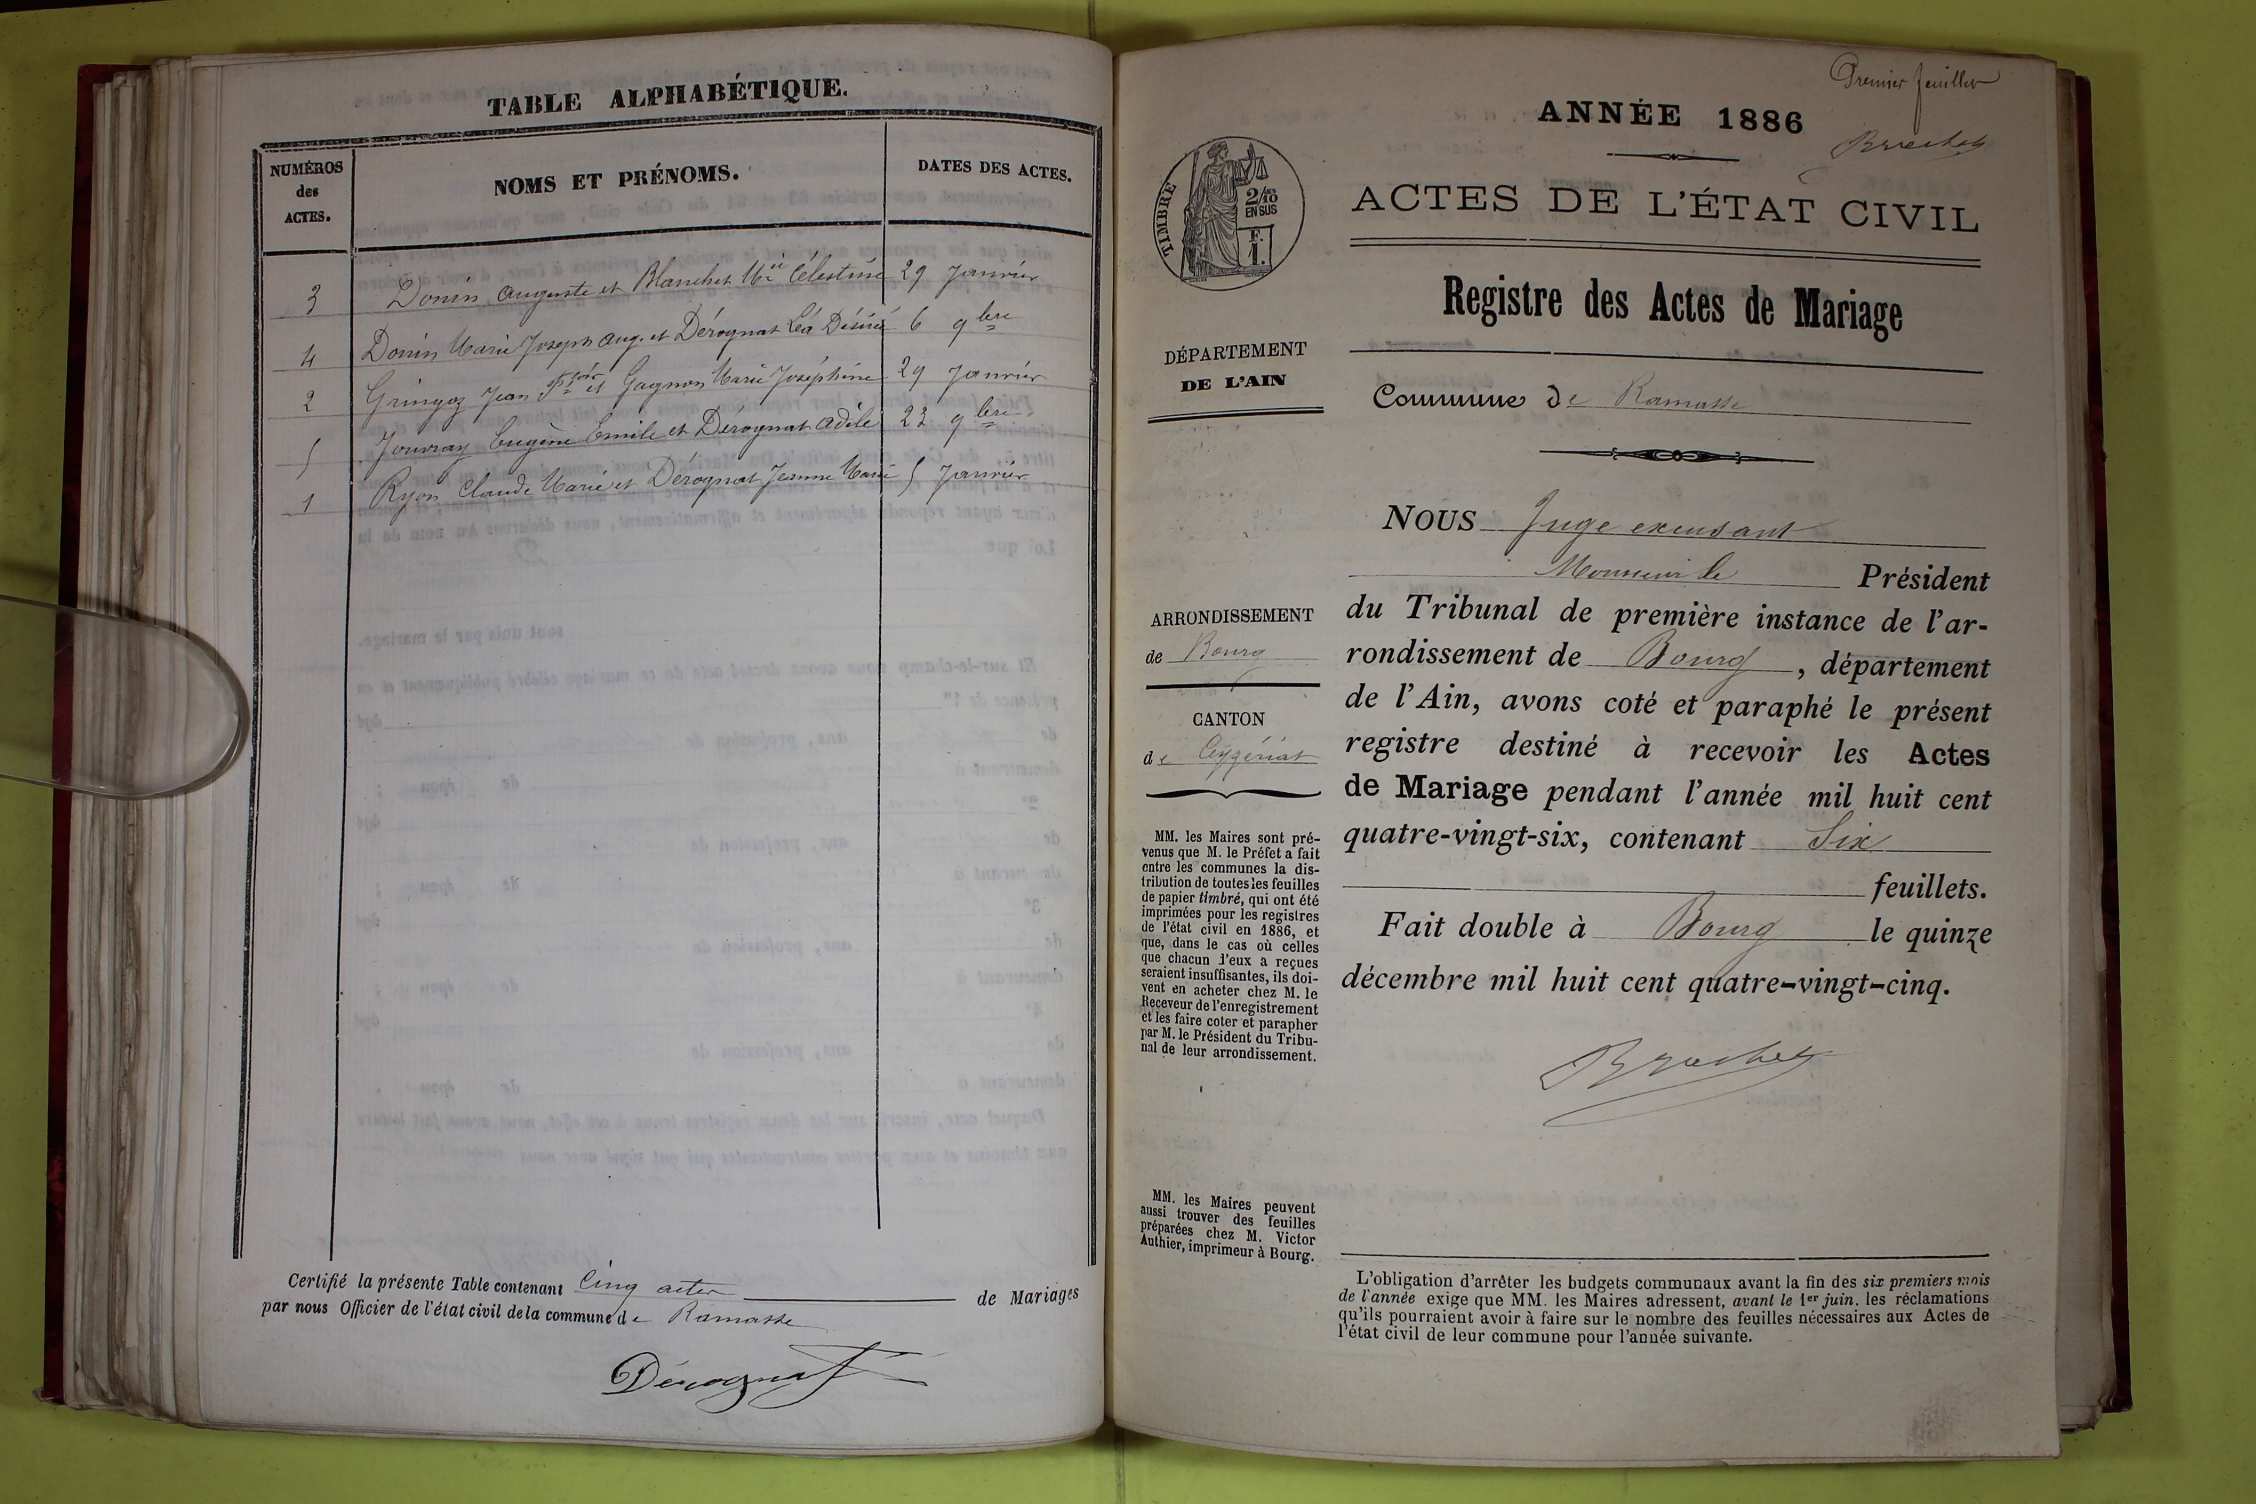 TABLE ALPHABÉTIQUE.
NUMÉROS
des
ACTES.
NOMS ET PRÉNOMS.
DATES DES ACTES.
3 Donin Auguste et Blanchet Mie Célestine 29 Janvier
4 Donin Marie Joseph Aug. et Dérognat Léa Désirée 6 9bre
2 Gringoz Jean et Gagnon Marie Joséphine 29 Janvier
5 Jouvray Eugène Emile et Dérognat Adèle 23 9bre
1 Ryon Claude Marie et Dérognat Jeanne Marie 5 Janvier
Certifié la présente Table contenant Cinq actes de Mariages
par nous Officier de l'état civil de la commune de Ramasse
Dérognat
Premier feuillet
ANNÉE 1886
TIMBRE
2/10
EN SUS
F.
1.
ACTES DE L'ÉTAT CIVIL
Registre des Actes de Mariage
DÉPARTEMENT
DE L'AIN
Commune de Ramasse
NOUS Juge excusant
Monsieur le Président
du Tribunal de première instance de l'ar-
rondissement de Bourg, département
de l'Ain, avons coté et paraphé le présent
registre destiné à recevoir les Actes
de Mariage pendant l'année mil huit cent
quatre-vingt-six, contenant Six
feuillets.
Fait double à Bourg le quinze
décembre mil huit cent quatre-vingt-cinq.
ARRONDISSEMENT
de Bourg
CANTON
de Ceyzériat
MM. les Maires sont pré-
venus que M. le Préfet a fait
entre les communes la dis-
tribution de toutes les feuilles
de papier timbré, qui ont été
imprimées pour les registres
de l'état civil en 1886, et
que, dans le cas où celles
que chacun d'eux a reçues
seraient insuffisantes, ils doi-
vent en acheter chez M. le
Receveur de l'enregistrement
et les faire coter et parapher
par M. le Président du Tribu-
nal de leur arrondissement.
MM. les Maires peuvent
aussi trouver des feuilles
préparées chez M. Victor
Authier, imprimeur à Bourg.
L'obligation d'arrêter les budgets communaux avant la fin des six premiers mois
de l'année exige que MM. les Maires adressent, avant le 1er juin, les réclamations
qu'ils pourraient avoir à faire sur le nombre des feuilles nécessaires aux Actes de
l'état civil de leur commune pour l'année suivante.